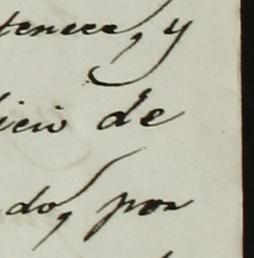 tenece, y
icio de
do, por